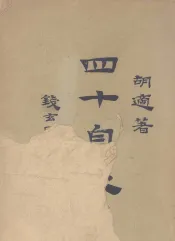 胡適著
四十自
錢玄